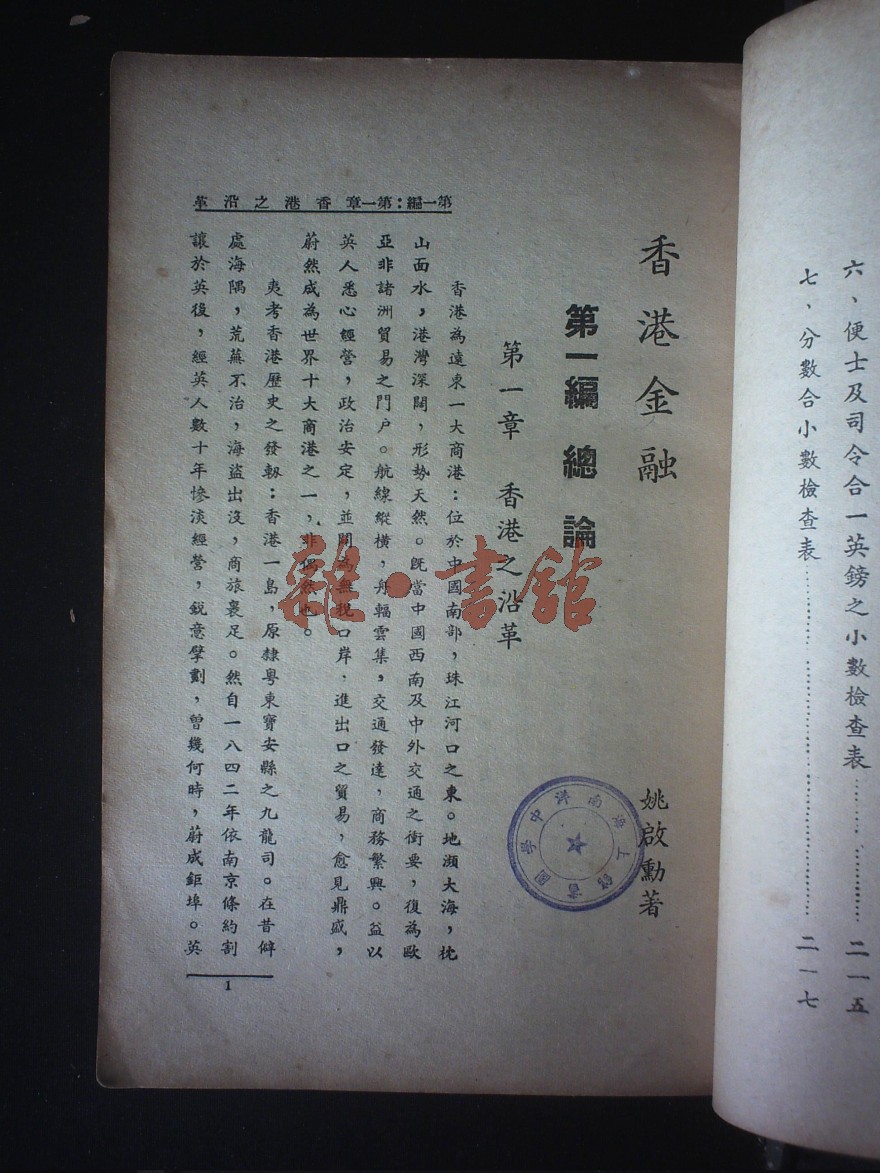 六、便士及司令合一英鎊之小數檢查表……………二一五
七、分數合小數檢查表……………二一七
第一編:第一章香港之沿革
香港金融
姚啟勳著
第一編 總論
第一章 香港之沿革
香港為遠東一大商港:位於中國南部,珠江河口之東。地瀕大海,枕
山面水,港灣深闊,形勢天然。既當中國西南及中外交通之衝要,復為歐
亞非諸洲貿易之門户。航線縱橫,舟輻雲集,交通發達,商務繁興。益以
英人悉心經營,政治安定,並開為無稅口岸,進出口之貿易,愈見鼎盛,
蔚然成為世界十大商港之一,非偶然也。
夷考香港歷史之發軔:香港一島,原隸粵東寶安縣之九龍司。在昔僻
處海隅,荒蕪不治,海盜出沒,商旅裹足。然自一八四二年依南京條約割
讓於英後,經英人數十年慘淡經營,銳意擘劃,曾幾何時,蔚成鉅埠。英
1
上海南洋中學圖書館
雜·書館